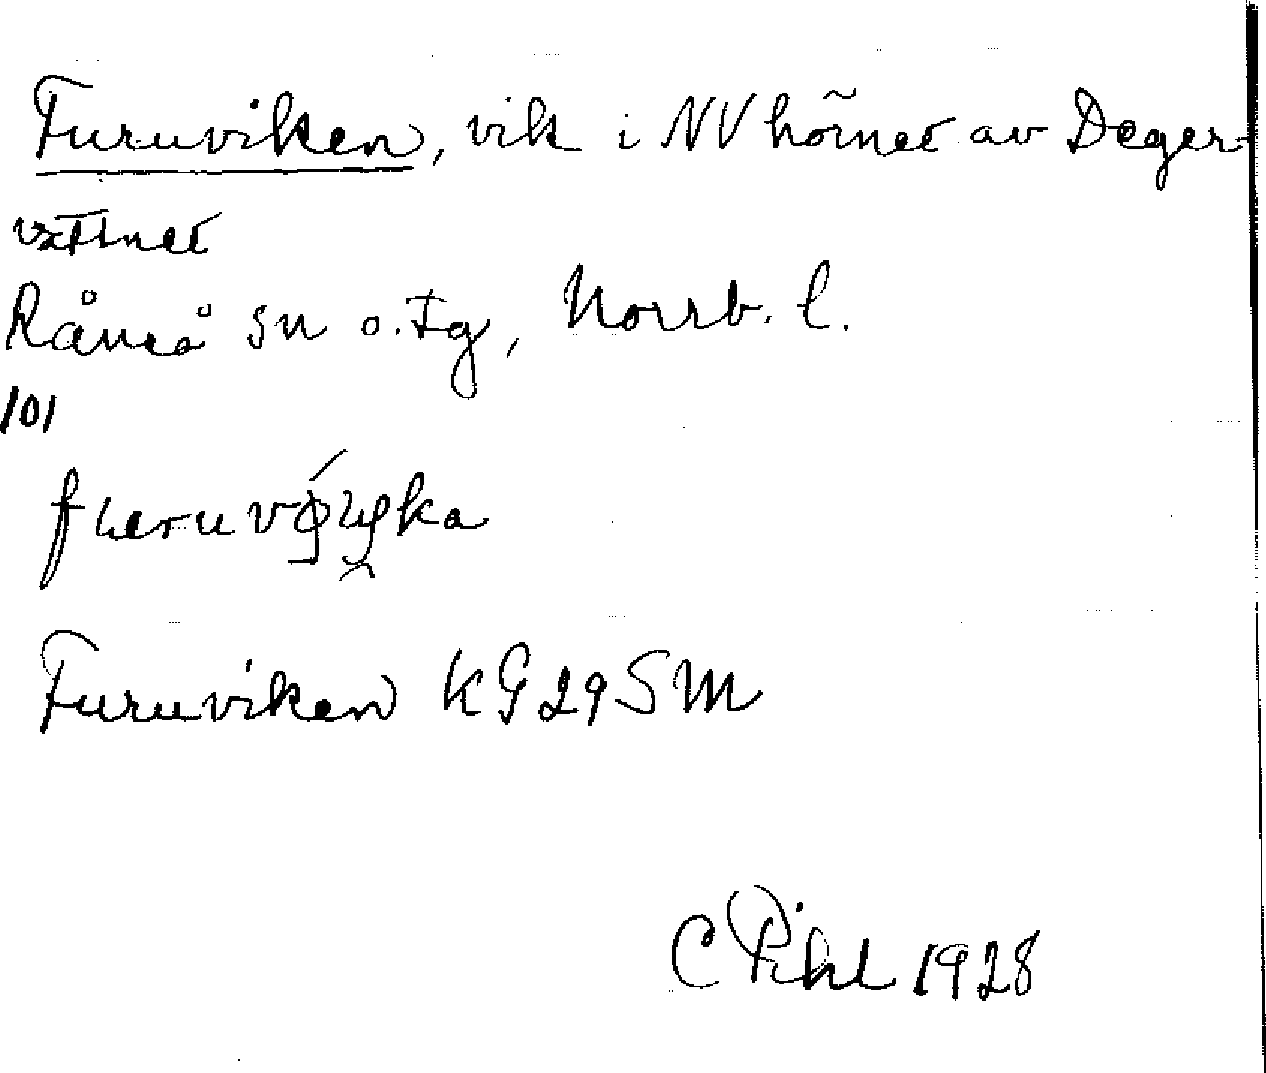 Furuviken, vik i NV hörnet av Deger-
vattnet
Råneå sn o. tg, Norrb. l.
101
Furuviken KG 29 SM
C Pihl 1928